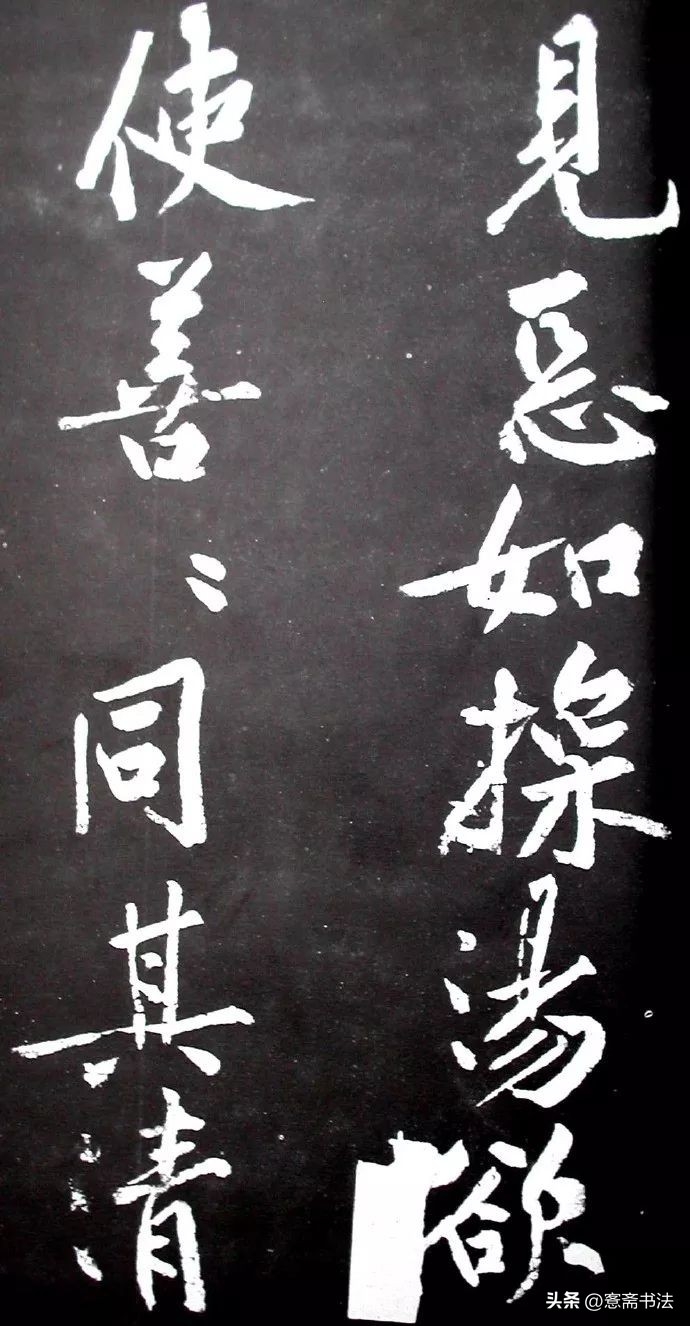 見惡如探湯欲
使善〻同其清
头条 @愙斋书法